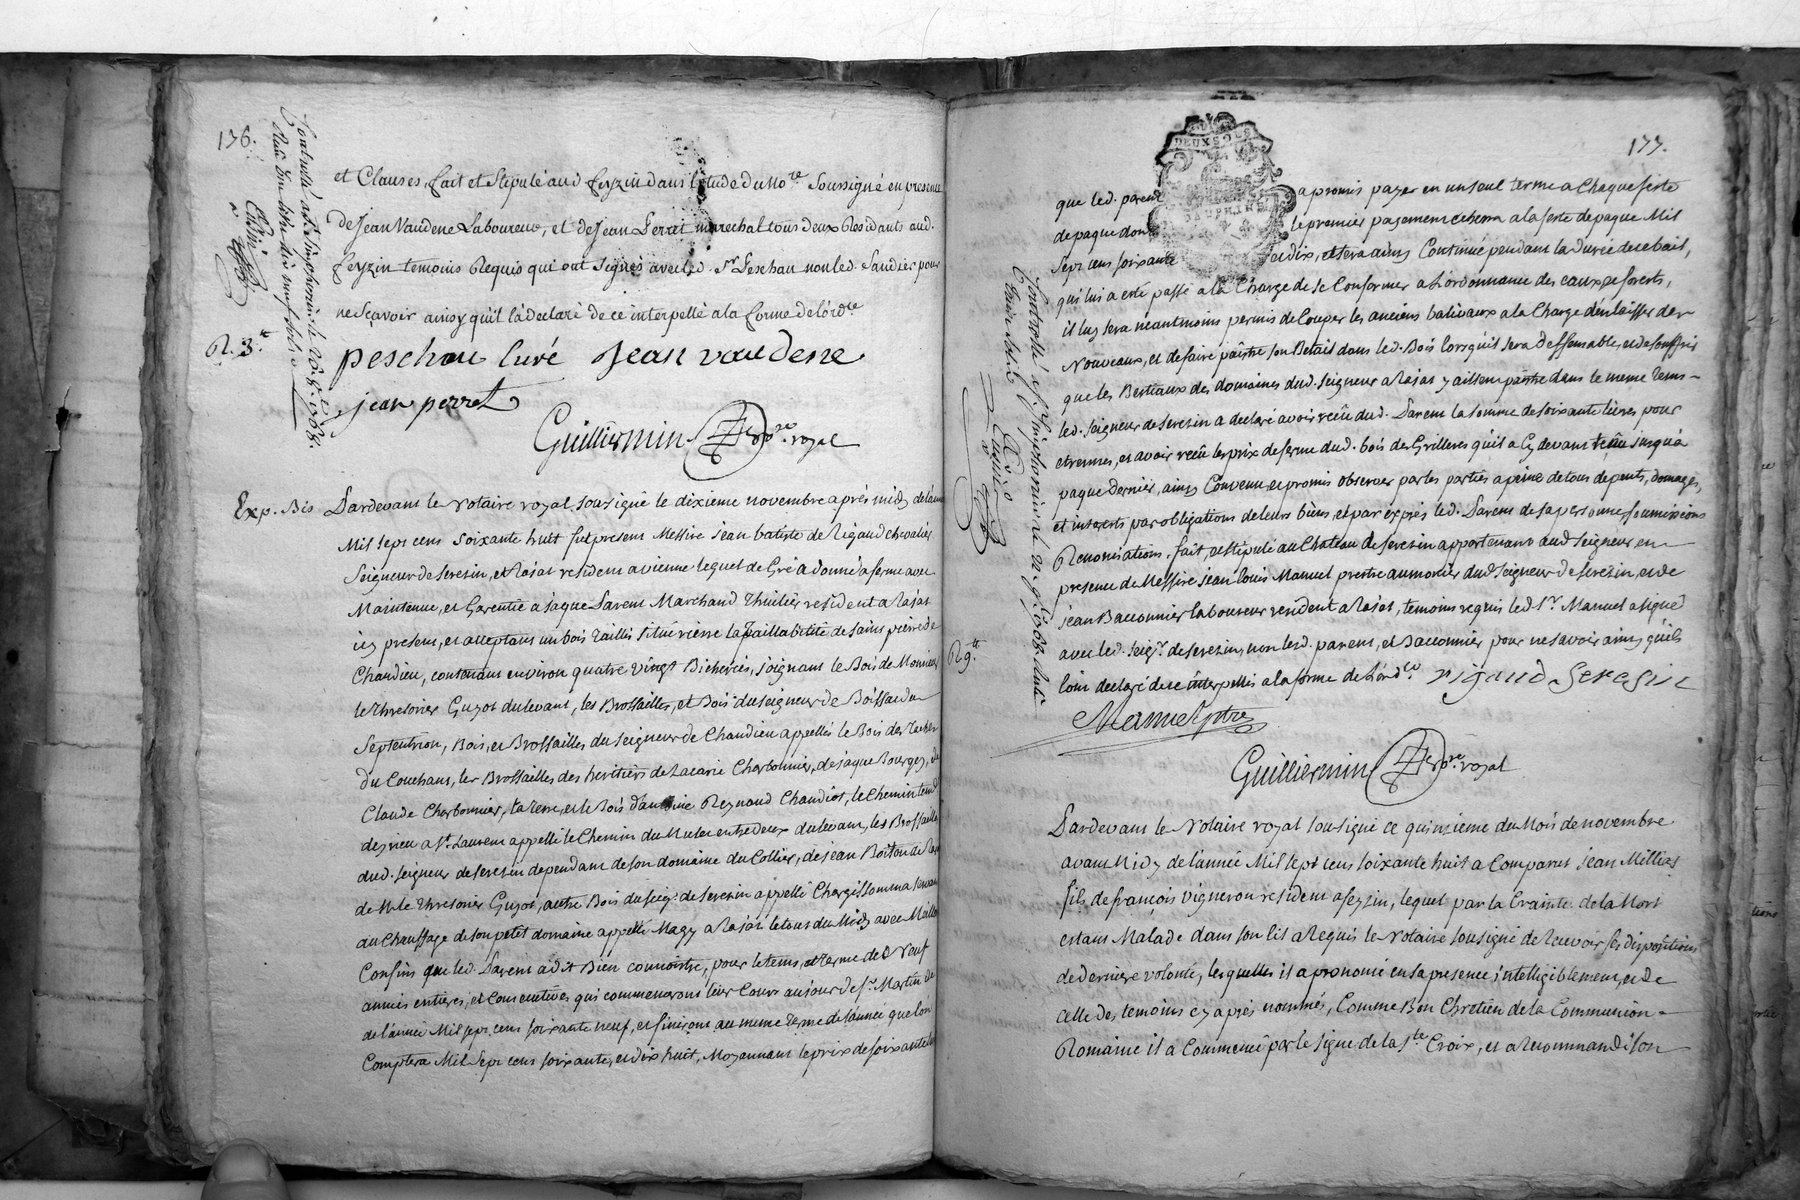 176.
et Clauses, fait et stipulé aud feyzin dans l'etude du No.re soussigné en presence
de Jean Vaudene Laboureur, et de Jean Perret marechal tous deux Residants aud.
feyzin temoins Requis qui ont signés avec led. Sr Peschau non led. Saudier pour
ne sçavoir ainsy qu'il l'a declaré de ce interpellé a la forme de l'ord.ce
R. 3.tt
peschau Curé Jean vaudene
jean perret
Guilliermin no.re royal
Exp. Bis Pardevant le Notaire royal soussigné le dixieme novembre après midy de l'année
Mil sept cens soixante huit fut present Messire jean batiste de Rigaud chevalier
Seigneur de Serezin, et Rajat resident a vienne lequel de Gré a donné a ferme avec
Maintenue, et Garentie a jaque Parent Marchand Thuilier resident a Rajat
icy present, et acceptant un bois Taillis situé rierre la Taillabilité de Saint pierre de
Chandieu, contenant environ quatre vingt Bicherées, joignant le Bois de Monsieur
le Thresorier Guyot du levant, les Brossailles, et Bois du seigneur de Boissac du
Septentrion, Bois, et Brossailles du Seigneur de Chandieu appellés le Bois des
du Couchant, les Brossailles des heritiers de Zacarie Charbonnier, de jaque Bourgey, et de
Claude Charbonnier, la terre, et le Bois d'antoine Reynaud Chandiot, le Chemin tendant
deyrieu a St. Laurent appellé le Chemin du Mulet entredeux du levant, les Brossailles
dud. seigneur de serezin dependant de son domaine du Collier, de jean Boiton de
de M. le Thresorier Guyot, autre Bois du seigr. de Serezin appellé servant
au Chauffage de son petit domaine appellé Magy a Rajat le tout du Midy avec Meilleurs
Confins que led. Parent a dit Bien connoitre, pour le tems, et terme de Neuf
années entieres, et Consecutives qui commenceront leur Cours au jour de St. Martin de
de l'année Mil sept cens soixante neuf, et finiront au meme terme de l'année que l'on
Comptera Mil Sept cens soixante, et dix huit, Moyennant le prix de soixante
177.
DEUX SOLS
que led. parent a promis payer en un seul terme a Chaque feste
de paque dont le premier payement echerra a la feste de paque Mil
Sept cens soixante et dix, et sera ainsy Continué pendant la durée de ce bail,
qui lui a eté passé a la Charge de se Conformer a L'ordonnance des eaux et forests,
il luy sera neantmoins permis de Couper les anciens baliveaux a la Charge d'en laisser de
Nouveaux, et de faire paitre son Betail dans led. Bois lorsqu'il sera deffensable, et de souffrir
que les Bestiaux des domaines dud. seigneur a Rajat y aillent paitre dans le meme tems
led. seigneur de serezin a declaré avoir reçû dud. Parent la somme de soixante livres pour
etrennes, et avoir reçû le prix de ferme dud. bois de Grilleres qu'il a Cy devant tenu jusqu'à
paque dernier, ainsy Convenu, et promis observer par les parties a peine de tous depents, domages,
et interets par obligations de leurs biens, et par exprès led. Parent de sa personne soumissions
Renonciations, fait, et stipulé au Chateau de serezin appartenant aud seigneur en
presence de Messire jean louis Manuel prestre aumonier dud seigneur de serezin, et de
jean Bacconnier laboureur resident a Rajat, temoins requis led. Sr. Manuel a signé
avec led. seigr. de serezin, non led. parent, et Bacconnier pour ne savoir ainsy qu'ils
l'ont declaré de ce interpellés a la forme de l'ord.ce rigaud Seresin
R 9.tt
Manuel ptre
Guilliermin no.re royal
Pardevant le Notaire royal soussigné ce quinzieme du Mois de novembre
avant Midy de l'année Mil sept cens soixante huit a Comparut jean Milliat
fils de françois vigneron resident a feyzin, lequel par la Crainte de la Mort
estant Malade dans son lit a Requis le Notaire soussigné de Recevoir ses dispositions
de derniere volonté, lesquelles il a prononcé en sa presence intelligiblement, et de
celle des temoins cy après nommés, Comme Bon Chretien de la Communion
Romaine il a Commencé par le signe de la Ste Croix, et a recommandé son